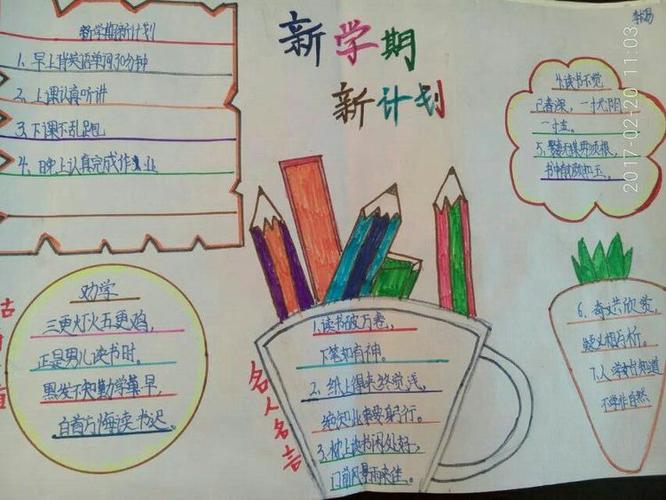 新学期
新计划
新学期新计划
1、早上背英语单词30分钟
2、上课认真听讲
3、下课不乱跑
4、晚上认真完成作业
劝学
三更灯火五更鸡，
正是男儿读书时。
黑发不知勤学早，
白首方悔读书迟。
名人名言
1.读书破万卷，
下笔如有神。
2、纸上得来终觉浅，
绝知此事要躬行。
3、枕上读书闲处好，
门前风景雨来佳。
4.读书不觉
已春深，一寸光阴
一寸金。
6、奇文共欣赏，
疑义相与析。
7、人学始知道
不学非自然
2017-02-20 11:03